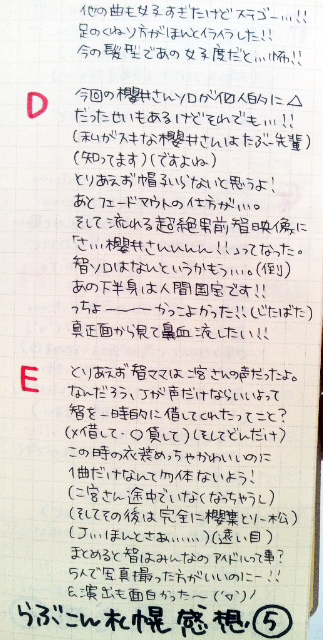 他の曲も女子すぎたけどスラゴー…!!
足のくねり方がほんとイライラした!!
今の髪型であの女子度だと…怖!!
D 今回の櫻井さんソロが個人的に△
だったせいもあるけどそれでも…!!
(私がスキな櫻井さんはたぶん先輩)
(知ってます)(ですよね)
とりあえず帽子いらないと思うよ!
あとフェードアウトの仕方が…。
そして流れる超絶男前智映像に
「さい櫻井さんんんん!!」ってなった。
智ソロはないというかもう…。(倒)
あの下半身は人間国宝です!!
っちょーーーかっこよかった!!(じたばた)
真正面から見て鼻血流したい!!
E とりあえず智ママは二宮さんの声だったよ。
なんだろう、Jが声だけならいいよって
智を一時的に借してくれたってこと?
(×借して・〇貸して)(そしてどんだけ)
この時の衣装めっちゃかわいいのに
1曲だけなんて勿体ないよう!
(二宮さん途中でいなくなっちゃうし)
(そしてその後は完全に櫻葉とりー松)
(J…ほんとさぁ……)(遠い目)
まとめると智はみんなのアイドルって事?
5人で写真撮った方がいいのにー!!
&演出も面白かったー(^▽^)/
らぶこん札幌感想⑤